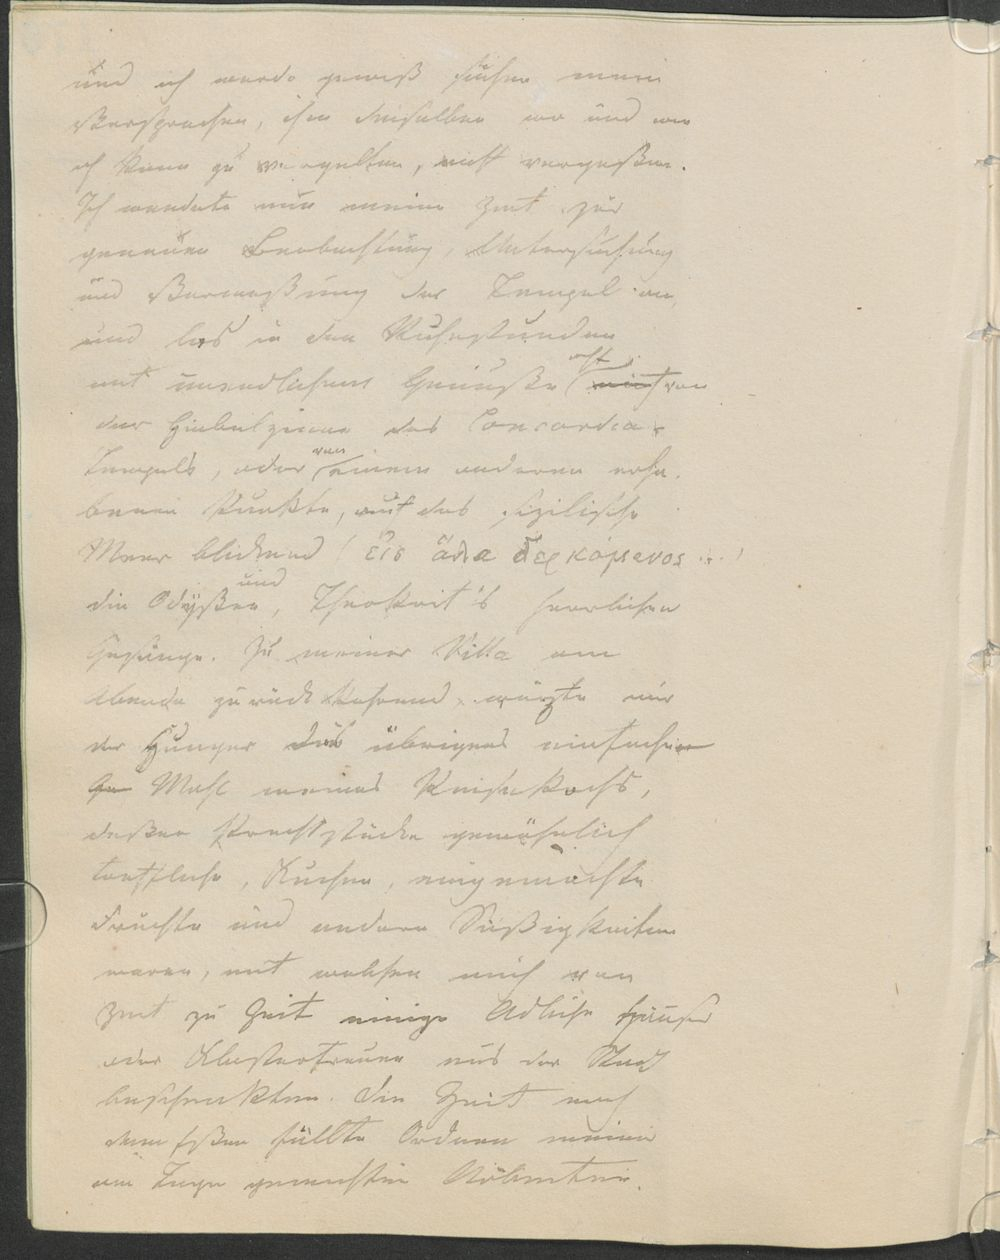 und ich werde gewiß früher mein
Versprechen, ihm dieselben wo und wie
ich kann zu vergelten, nicht vergeßen.
Ich wendete nun meine Zeit zur
genauen Beobachtung, Untersuchung
und Vermeßung der Tempel an,
und las in den Ruhestunden
mit unendlichem Genuße oft von
der Giebelzinne des Concordia-
Tempels, oder von einem anderen erha-
benen Punkte, auf das sizilische
Meer blickend (εἰς ἅλα δερκόμενος ...)
die Odyßee, und Theokrit's herrlichen
Gesänge. Zu meiner Villa am
Abende zurückkehrend, würzte mir
der Hunger das übrigens einfache
Mahl meines Reisekochs,
deßen Prachtstücke gewöhnlich
treffliche, Kuchen, eingemachte
Früchte und andere Süßigkeiten
waren, mit welchen mich von
Zeit zu Zeit einige Adliche Häuser
oder Klosterfrauen aus der Stadt
beschenkten. Die Zeit nach
dem Eßen füllte Ordnen meiner
am Tage gemachten